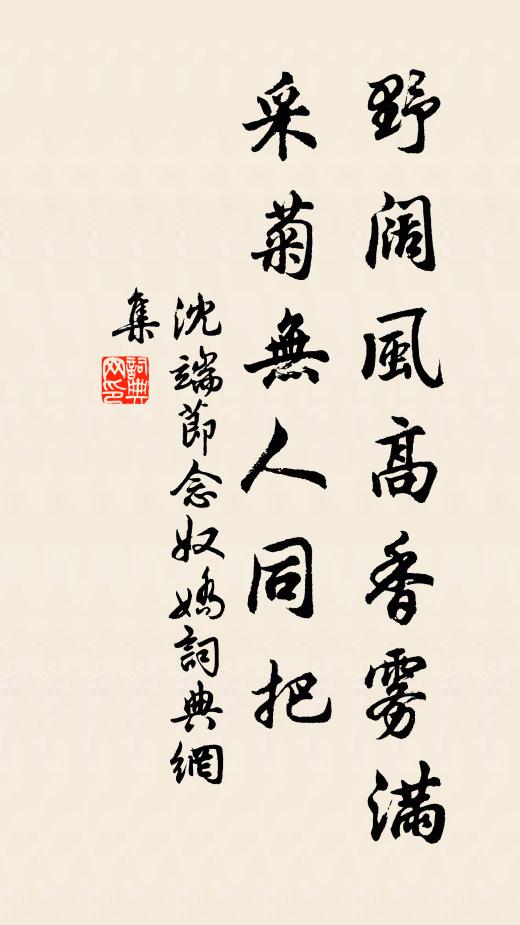 野阔風高香雾滿
采菊無人同把
沈端節念奴嬌詞典網
集
詞典
网印